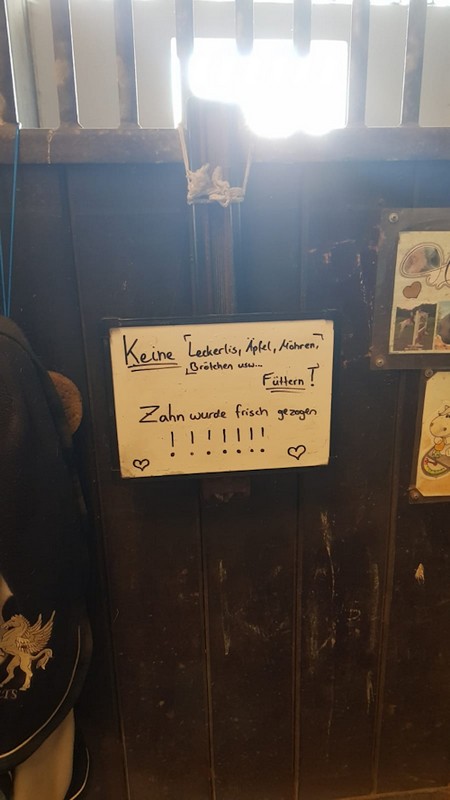 Keine Leckerlis, Äpfel, Möhren,
Brötchen usw...
Füttern!
Zahn wurde frisch gezogen
!!!!!!!